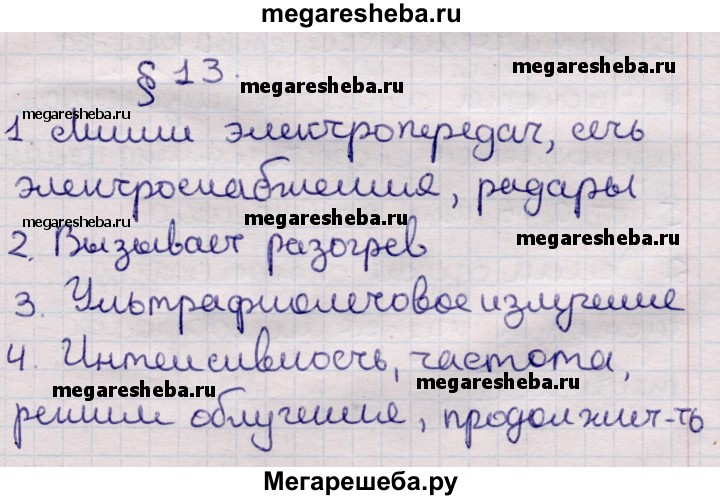 megaresheba.ru
§ 13.
megaresheba.ru megaresheba.ru
megaresheba.ru
1. Линии электропередач, сеть
электроснабжения, радары
megaresheba.ru megaresheba.ru megaresheba.ru
2. Вызывает разогрев
3. Ультрафиолетовое излучение
4. Интенсивность, частота,
megaresheba.ru megaresheba.ru
режим облучения, продолжит-ть
Мегарешеба.ру